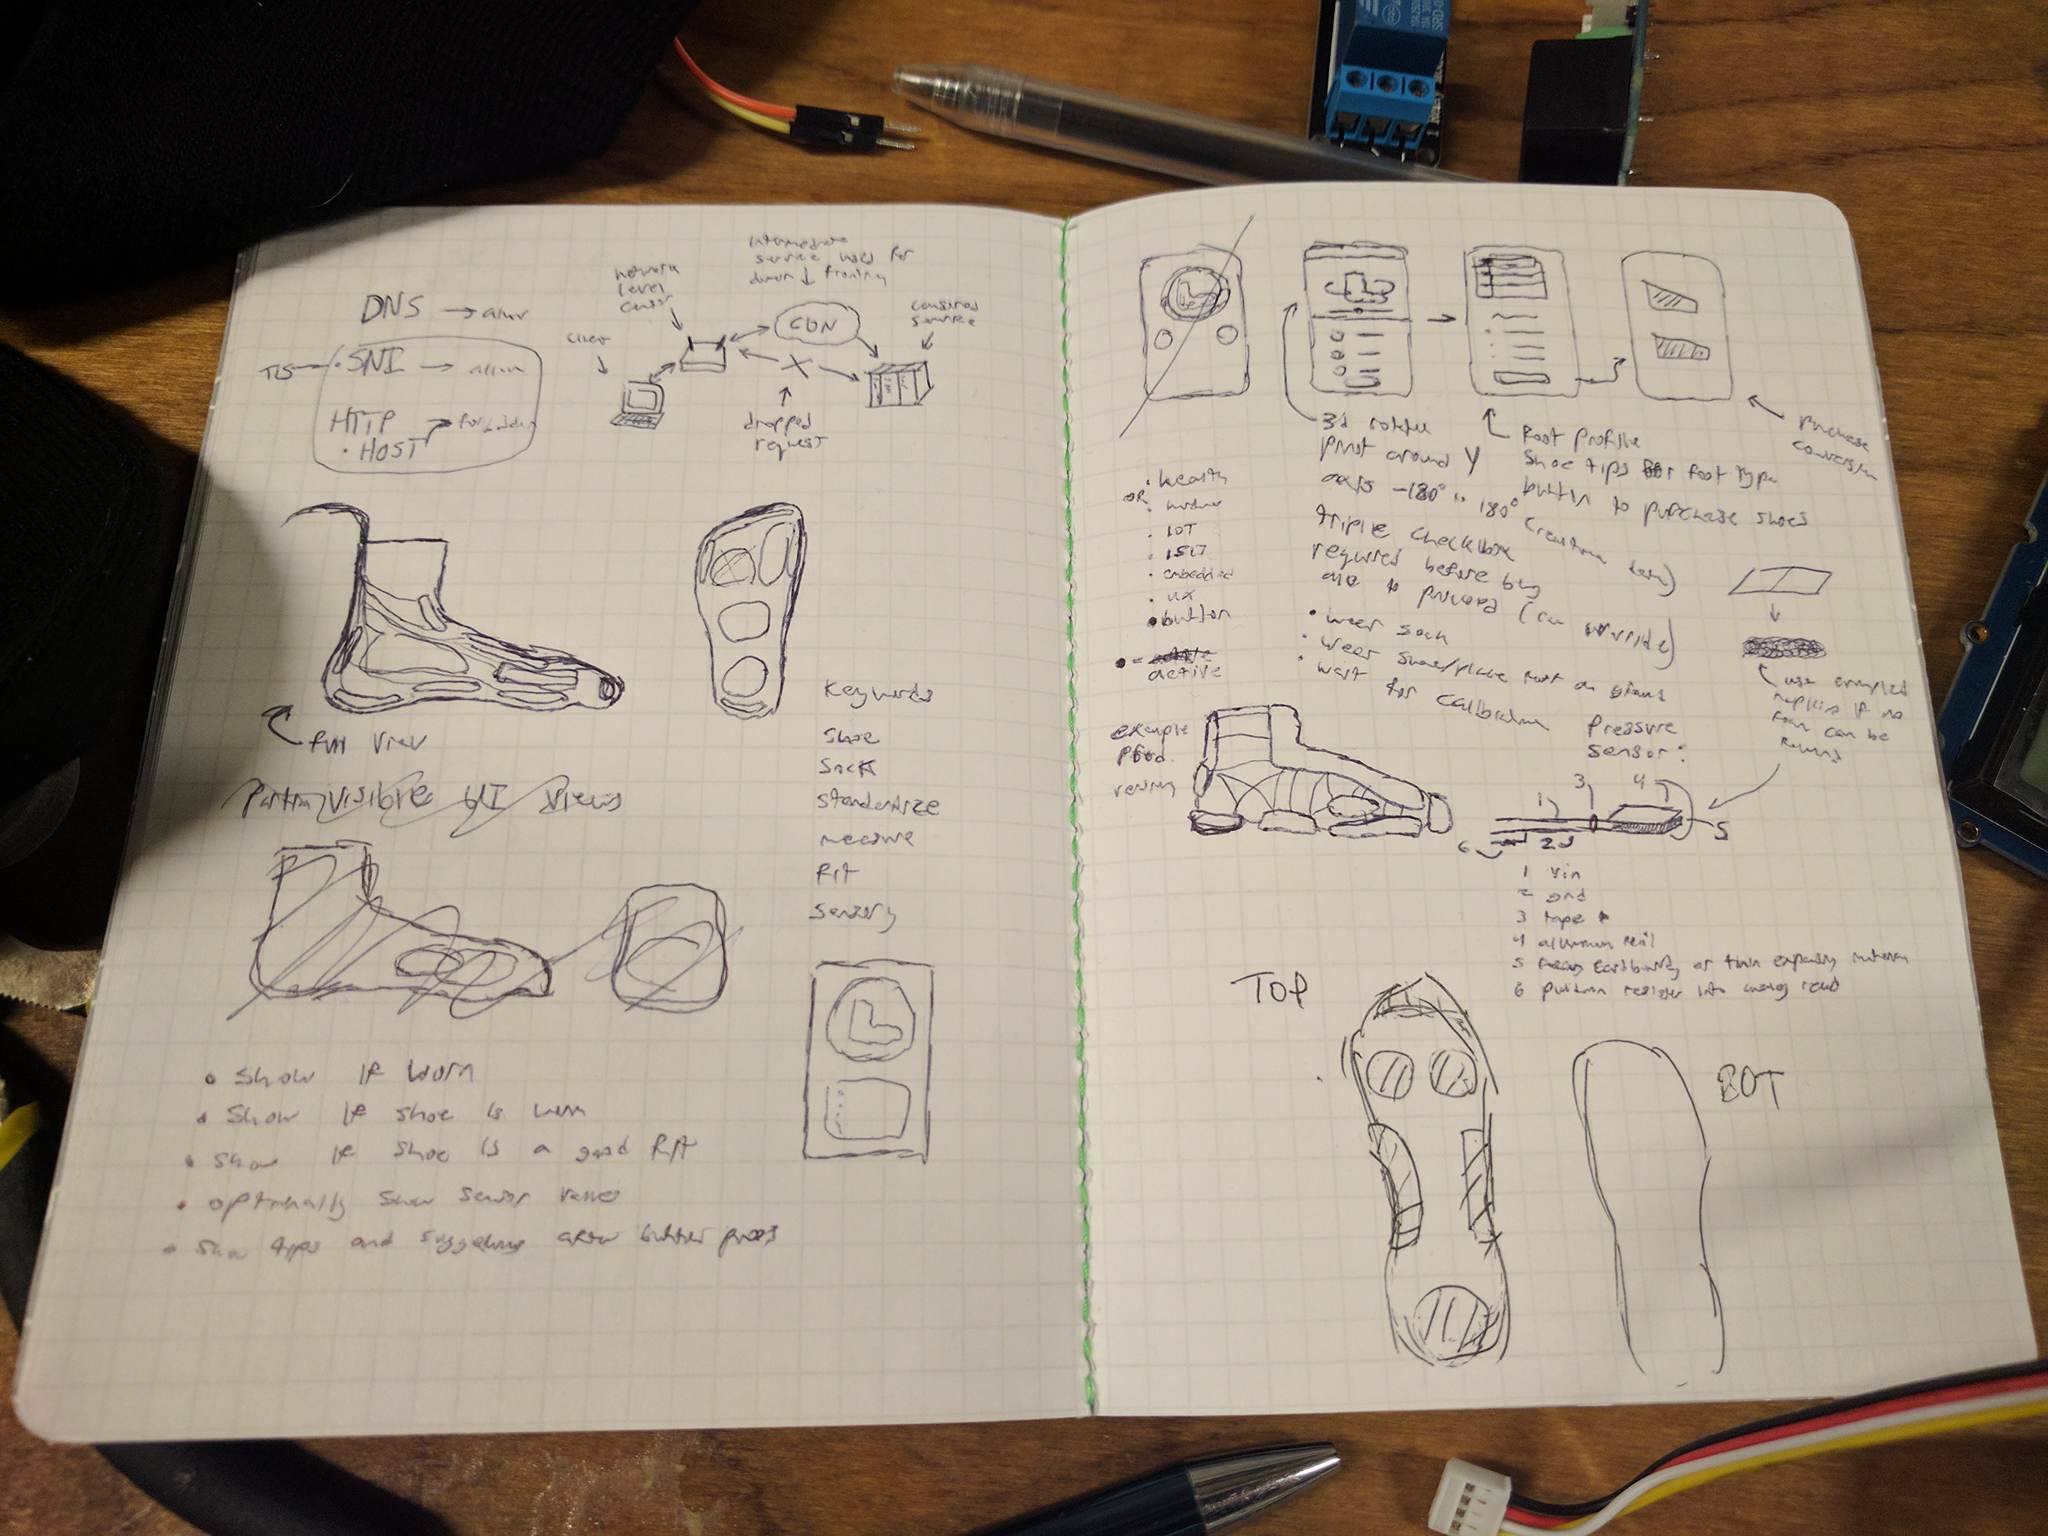 DNS → allow
TLS
SNI → allow
HTTP → forbidden
HOST
client
network
level
censor
intermediate
service used for
domain fronting
CDN
censored
service
dropped
request
full view
Keywords
shoe
sock
standardize
measure
fit
sensory
• show if worn
• show if shoe is worn
• show if shoe is a good fit
• optionally show sensor values
• show tips and suggestions
3d
pivot around Y
axis -180° to 180°
triple checkbox
required before being
able to proceed (can override)
• wear sock
• wear shoe/place foot on ground
• wait for calibration
foot profile
shoe tips for foot type
button to purchase shoes
purchase
conversion
• health
OR
• IOT
• embedded
• UX
• button
• =
active
use crumpled
napkins if no
foam can be
found
example
Pressure
sensor:
1
3
4
5
6
2
1 vin
2 gnd
3 tape
4 aluminum foil
5 or thin expanding material
6 pulldown resistor into analog read
TOP
BOT